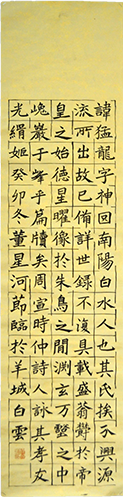 諱猛龍字神囙南陽白水人也其氏族分興源
流所出故已備詳世錄不復具載盛蓊鬱於帝
皇之始德星曜像於朱鳥之閒淵玄万壑之中
巉巖千峯乎篇牘矣周宣時仲詩人詠其孝友
光緝姬癸卯冬董星河節臨於羊城白雲